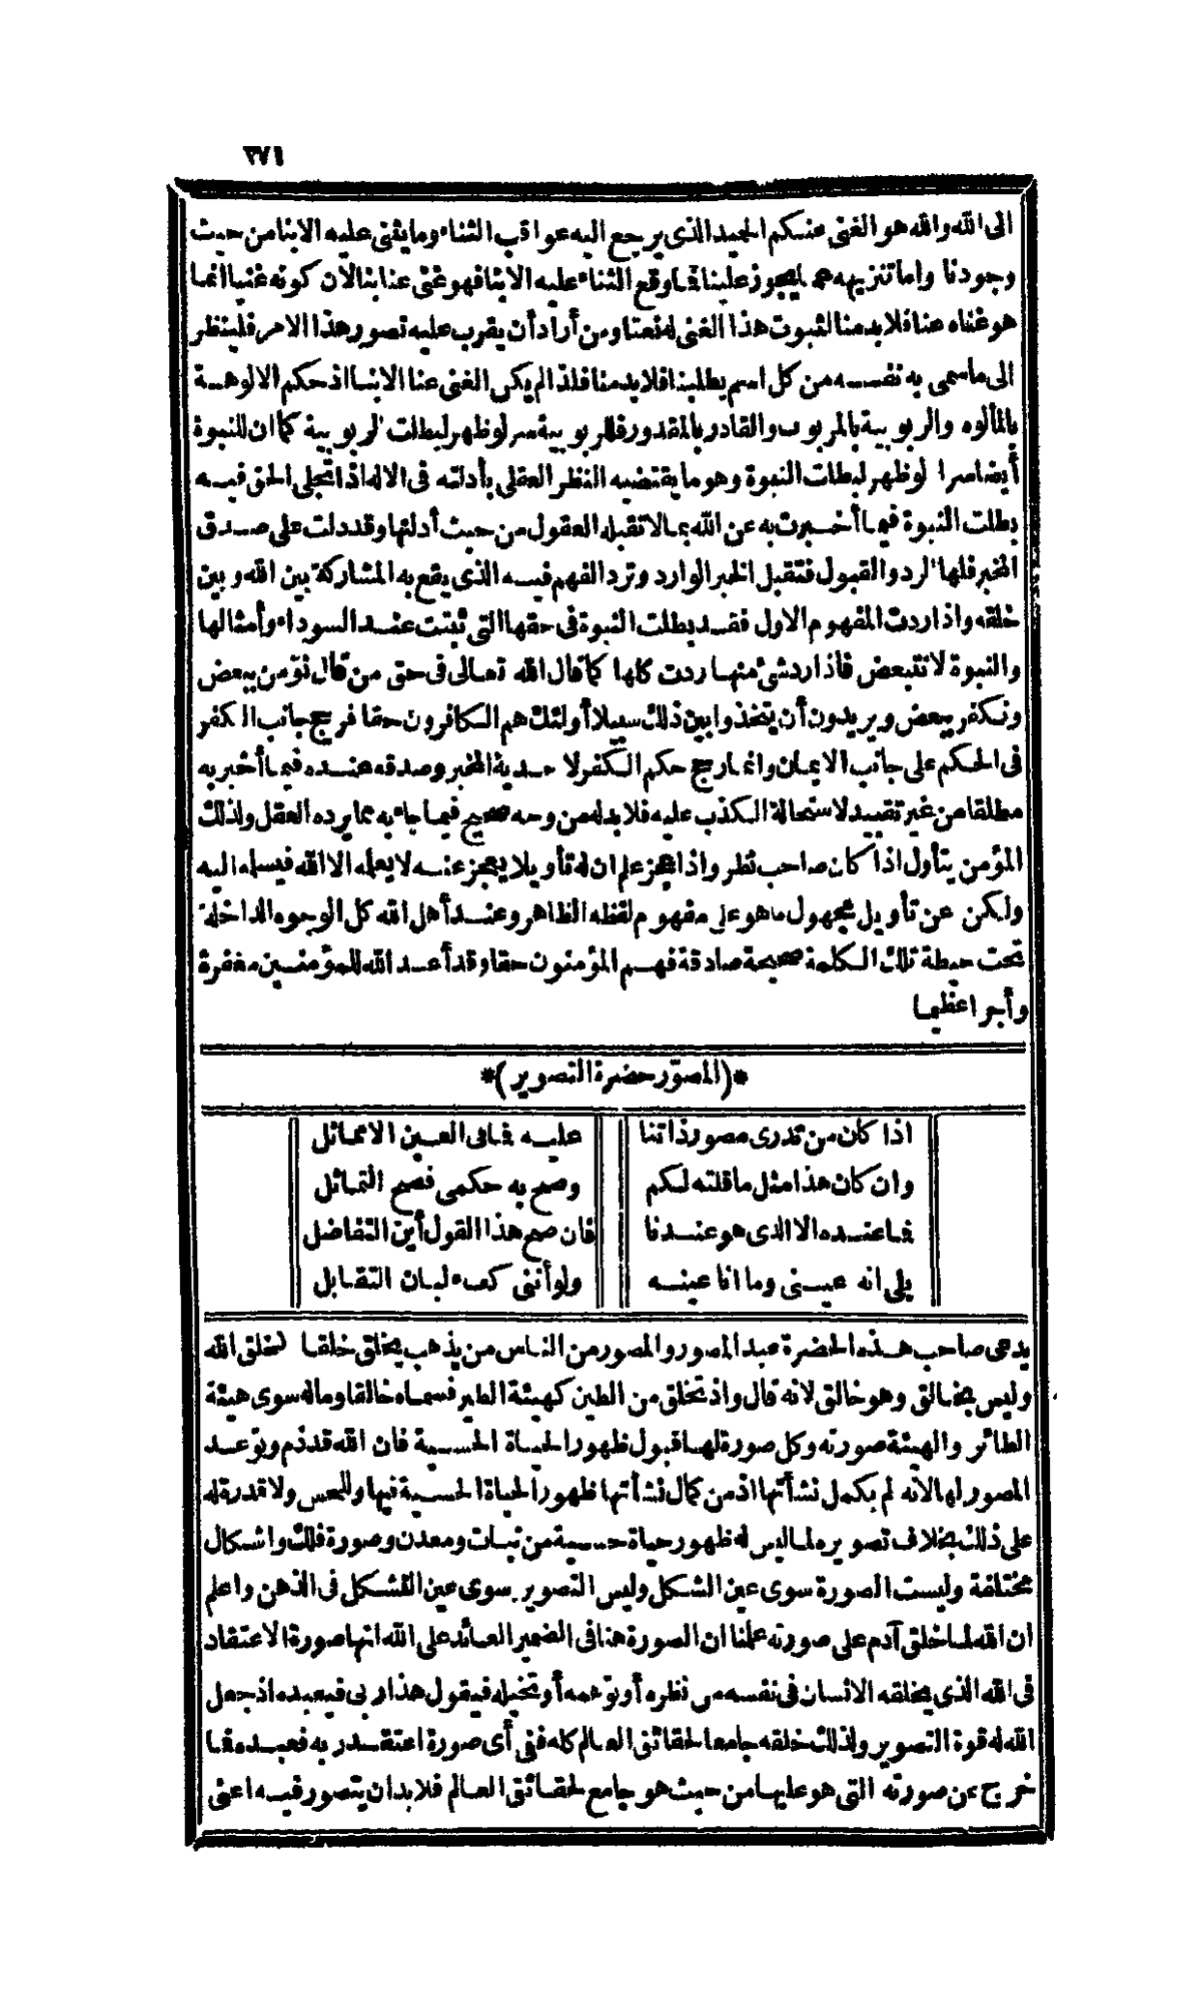 ٢٧١
الى الله والله هو الغنى عنكم الحميد الذى يرجع اليه عواقب الثناء وما يثنى عليه الا بنا من حيث
وجودنا واما تنزيهه عما يجوز علينا فما وقع الثناء عليه الا بنا فهو غنى عنا بنا لان كونه غنيا انما
هو غناه عنا فلا بد منا لثبوت هذا الغنى له نعتا ومن أراد أن يقرب عليه تصور هذا الامر فلينظر
الى ما سمى به نفسه من كل اسم يطلبنا فلا بد منا فلذا لم يكن الغنى عنا الا بنا اذ حكم الالوهة
بالمألوه والربوبية بالمربوب والقادر بالمقدور فللربوبية سر لو ظهر لبطلت الربوبية كما ان للنبوة
أيضا سرا لو ظهر لبطلت النبوة وهو ما يقتضيه النظر العقلى بأدلته فى الاله اذا تجلى الحق فيه
بطلت النبوة فيما أخبرت به عن الله بما لا تقبله العقول من حيث أدلتها وقد دلت على صدق
المخبر فلها الرد والقبول فتقبل الخبر الوارد وترد الفهم فيه الذى يقع به المشاركة بين الله وبين
خلقه واذا ردت المفهوم الاول فقد بطلت النبوة فى حقها التى ثبتت عند السوداء وأمثالها
والنبوة لا تتبعض فاذا رد شئ منها ردت كلها كما قال الله تعالى فى حق من قال نؤمن ببعض
ونكفر ببعض ويريدون أن يتخذوا بين ذلك سبيلا أولئك هم الكافرون حقا فرجح جانب الكفر
فى الحكم على جانب الايمان وانما رجح حكم الكفر لا حدية المخبر وصدقه عنده فيما أخبر به
مطلقا من غير تقييد لاستحالة الكذب عليه فلا بد له من وجه صحيح فيما جاء به مما يرده العقل ولذلك
المؤمن يتأول اذا كان صاحب نظر واذا عجز علم ان له تأويلا يعجز عنه لا يعلمه الا الله فيسلمه اليه
ولكن عن تأويل مجهول ما هو على مفهوم لفظه الظاهر وعند أهل الله كل الوجوه الداخلة
تحت حيطة تلك الكلمة صحيحة صادقة فهم المؤمنون حقا وقد أعد الله للمؤمنين مغفرة
وأجرا عظيما
*(المصوّر حضرة التصوير)*
اذا كان من تدرى مصور ذاتنا عليه فما فى العين الا مماثل
وان كان هذا مثل ما قلته لكم وصح به حكمى فصح التماثل
فما عنده الا الذى هو عندنا فان صح هذا القول أين التفاضل
بلى انه عينى وما انا عينه ولو أننى كفء لبان التقابل
يدعى صاحب هذه الحضرة عبد المصور والمصور من الناس من يذهب يخلق خلقا كخلق الله
وليس بخالق وهو خالق لانه قال واذ تخلق من الطين كهيئة الطير فسماه خالقا وما له سوى هيئة
الطائر والهيئة صورته وكل صورة لها قبول ظهور الحياة الحسية فان الله قد ذم وتوعد
المصور لها لانه لم يكمل نشأتها اذ من كمال نشأتها ظهور الحياة الحسية فيها وللحس ولا قدرة له
على ذلك بخلاف تصويره لما ليس له ظهور حياة حسية من نبات ومعدن وصورة فلك واشكال
مختلفة وليست الصورة سوى عين الشكل وليس التصوير سوى عين التشكل فى الذهن واعلم
ان الله لما خلق آدم على صورته علمنا ان الصورة هنا فى الضمير العائد على الله انها صورة الاعتقاد
فى الله الذى يخلقه الانسان فى نفسه من نظره أو توهمه أو تخيله فيقول هذا ربى فيعبده اذ جعل
الله له قوة التصوير ولذلك خلقه جامعا لحقائق العالم كله ففى أى صورة اعتقد ربه فعبده فما
خرج عن صورته التى هو عليها من حيث هو جامع لحقائق العالم فلا بد ان يتصور فيه اعنى